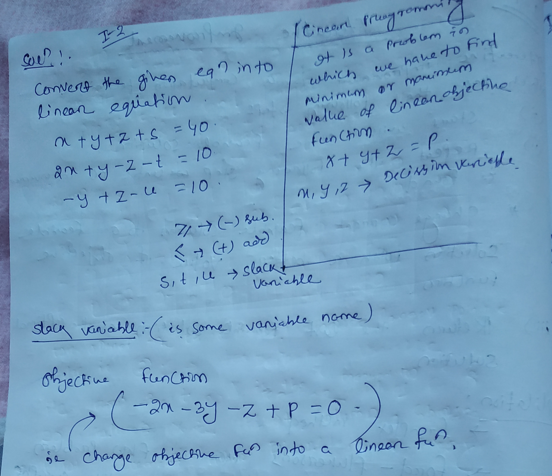 I-2
Soln:.
Convert the given eqn into
linear equation.
x + y + z + s = 40.
2x + y - z - t = 10
-y + z - u = 10.
≥ → (-) sub.
≤ → (+) add
s, t, u → slack
variable
Linear Programming
It is a problem in
which we have to find
minimum or maximum
value of linear objective
function.
x + y + z = P
x, y, z → Decission variable.
slack variable :- (is some variable name)
objective function
(-2x - 3y - z + P = 0.)
ie change objective fun into a linear fun.